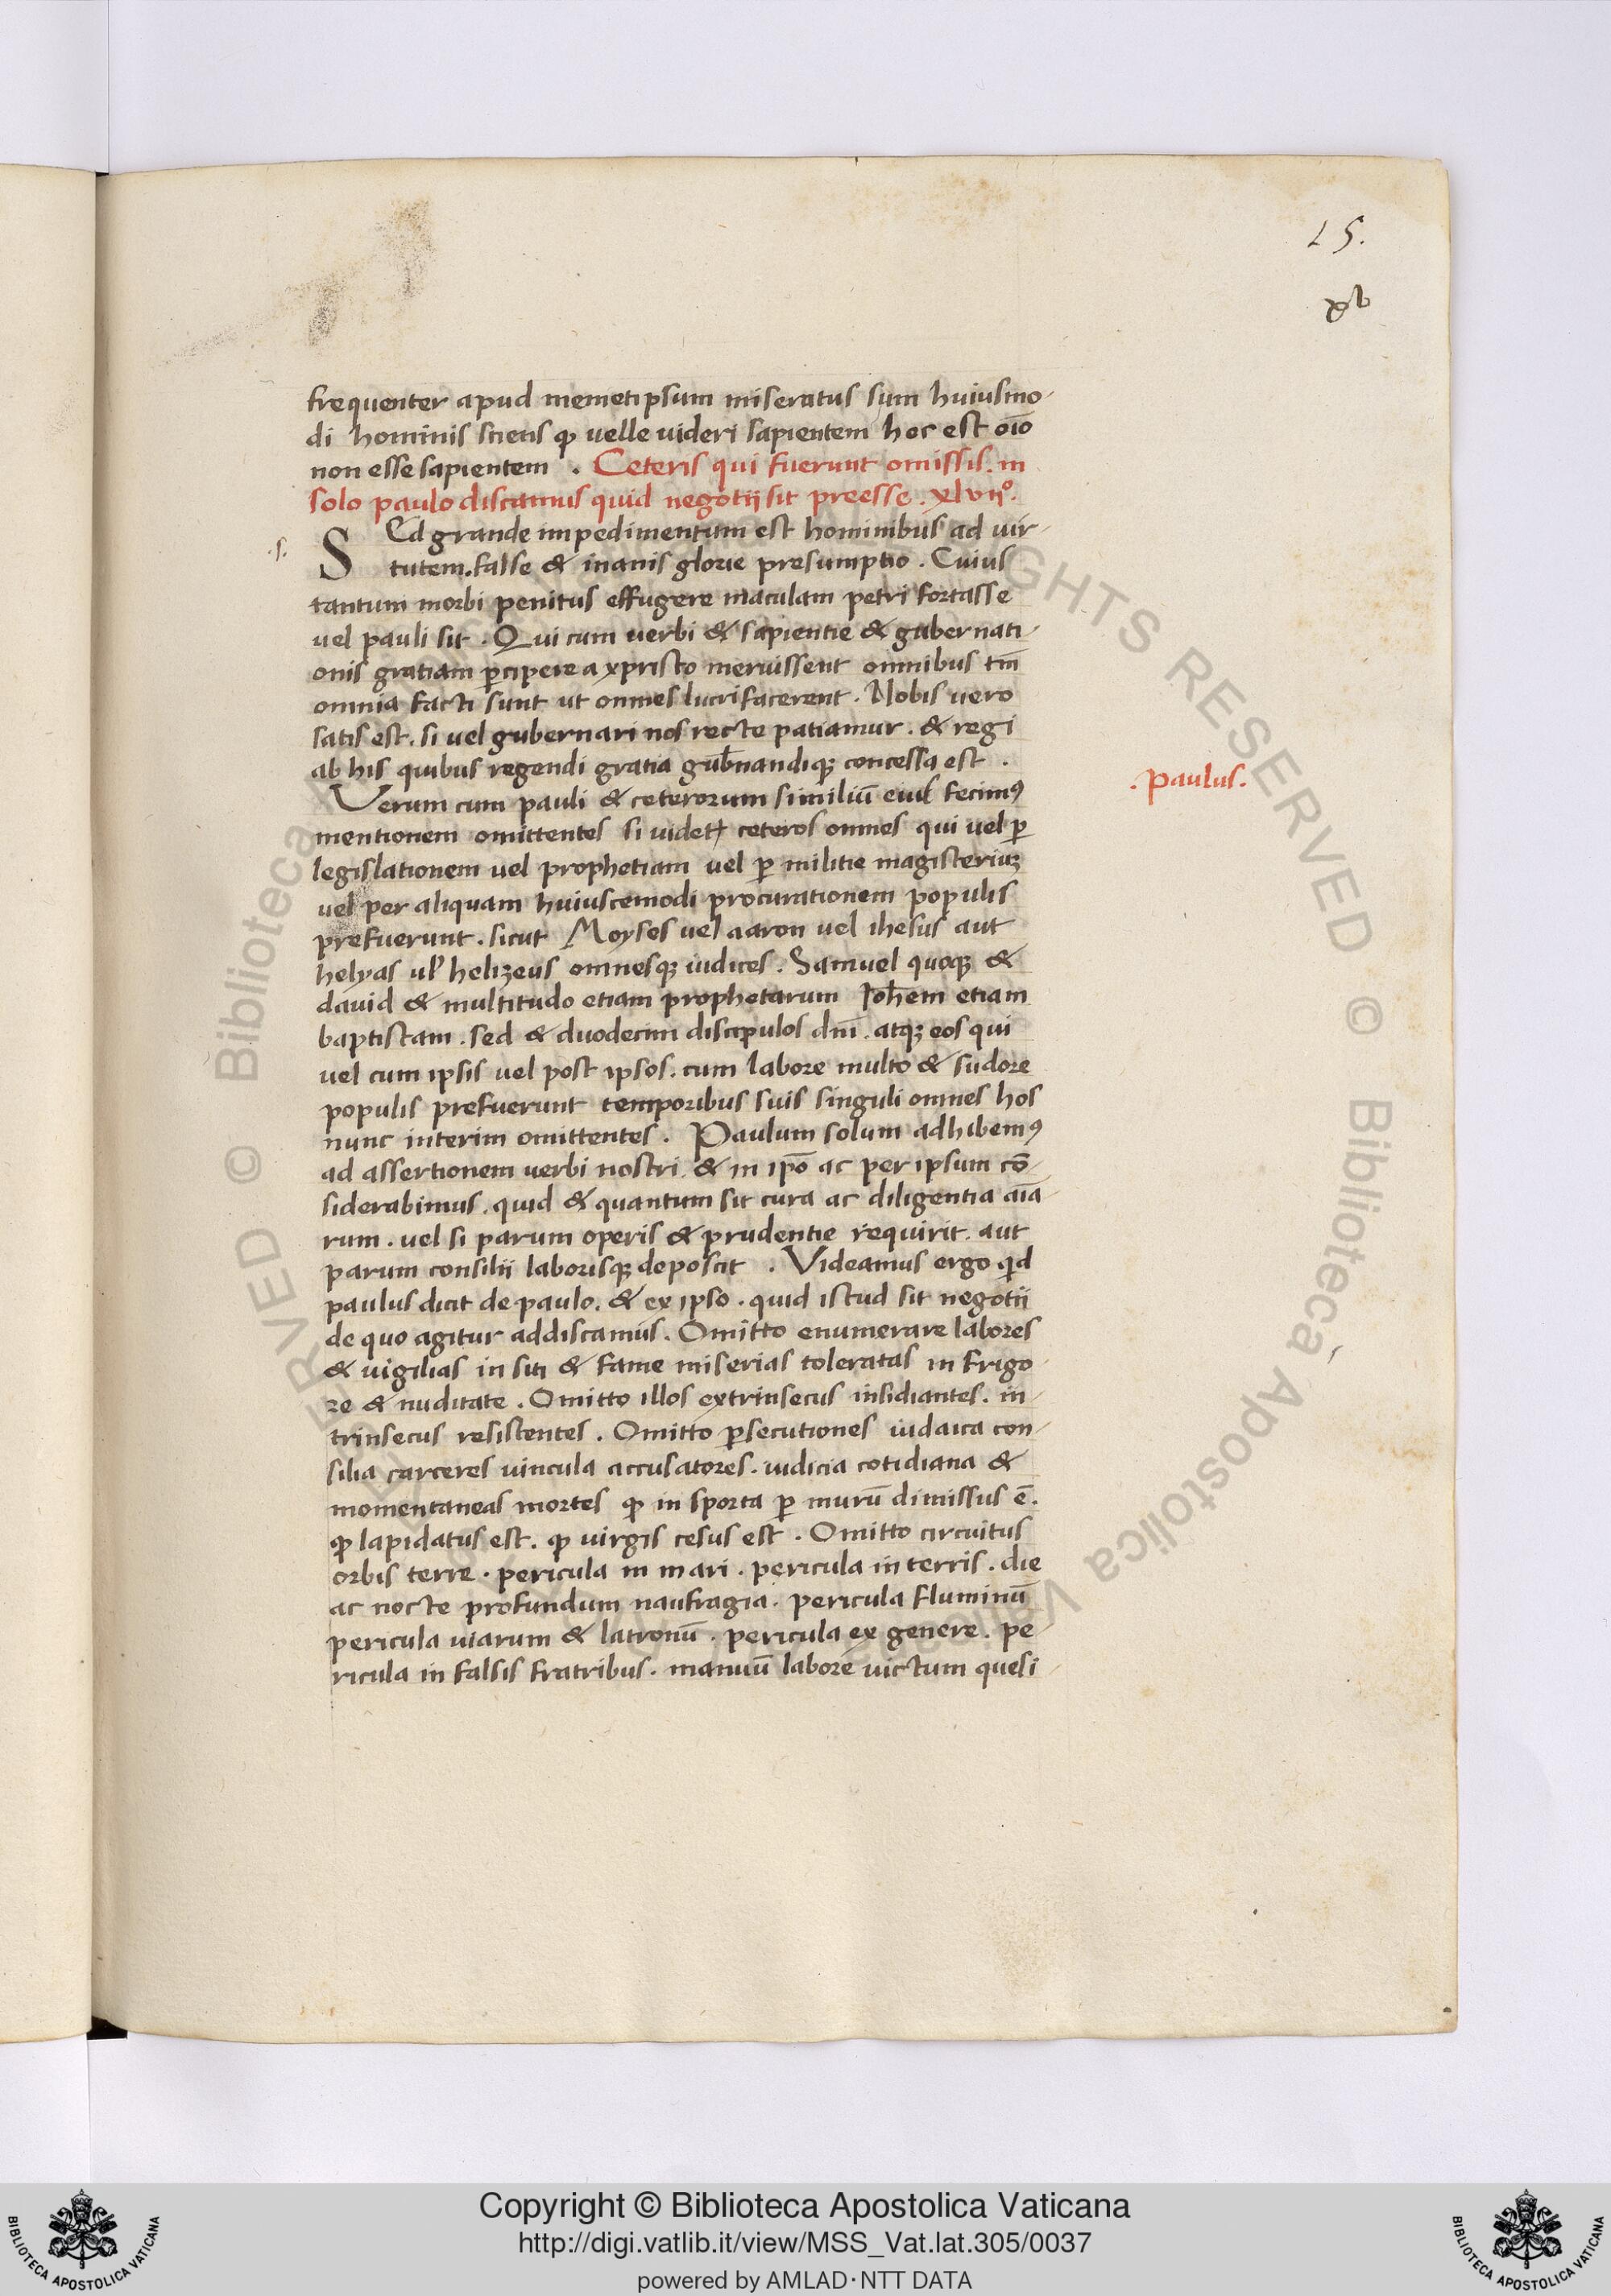 15.
xv
frequenter apud memetipsum miseratus sum huiusmo-
di hominis sciens ꝙ uelle uideri sapientem hoc est oīo
non esse sapientem . Ceteris qui fuerunt omissis . in
solo paulo discamus quid negotii sit preesse . xlvii°.
.s.
SEd grande impedimentum est hominibus ad uir-
tutem . false & inanis glorie presumptio . Cuius
tantum morbi penitus effugere maculam petri fortasse
uel pauli sit . Qui cum uerbi & sapientie & gubernati-
onis gratiam ꝑcipere a xpristo meruissent omnibus tm̄
omnia facti sunt ut omnes lucrifacerent . Nobis uero
satis est . si uel gubernari nos recte patiamur . & regi
ab his quibus regendi gratia gub̄nandiqꝫ concessa est .
Verum cum pauli & ceterorum similiū eius fecimꝰ
.paulus.
mentionem omittentes si uidetꝛ ceteros omnes qui uel ꝑ
legislationem uel prophetiam uel ꝑ militie magisteriuꝫ
uel per aliquam huiuscemodi procurationem populis
prefuerunt . sicut Moyses uel aaron uel ihesus aut
helyas ul' helizeus omnesqꝫ iudices . Samuel quoqꝫ &
dauid & multitudo etiam prophetarum Ioh̄em etiam
baptistam . sed & duodecim discipulos dnī . atqꝫ eos qui
uel cum ipsis uel post ipsos . cum labore multo & sudore
populis prefuerunt temporibus suis singuli omnes hos
nunc interim omittentes . Paulum solum adhibemꝰ
ad assertionem uerbi nostri & in ip̄o ac per ipsum cō-
siderabimus . quid & quantum sit cura ac diligentia aīa-
rum . uel si parum operis & prudentie requirit . aut
parum consilii laborisqꝫ deposcit . Videamus ergo qͥd
paulus dicit de paulo . & ex ipso . quid istud sit negotii
de quo agitur addiscamus . Omitto enumerare labores
& uigilias in siti & fame miserias toleratas in frigo-
re & nuditate . Omitto illos extrinsecus insidiantes . in-
trinsecus resistentes . Omitto ꝑsecutiones iudaica con-
silia carceres uincula accusatores . iudicia cotidiana &
momentaneas mortes ꝙ in sporta ꝑ murū dimissus ē .
ꝙ lapidatus est . ꝙ uirgis cesus est . Omitto circuitus
orbis terre . pericula in mari . pericula in terris . die
ac nocte profundum naufragia . pericula fluminū
pericula uiarum & latronū . pericula ex genere . pe-
ricula in falsis fratribus . manuū labore uictum quesi-
Copyright © Biblioteca Apostolica Vaticana
http://digi.vatlib.it/view/MSS_Vat.lat.305/0037
powered by AMLAD·NTT DATA